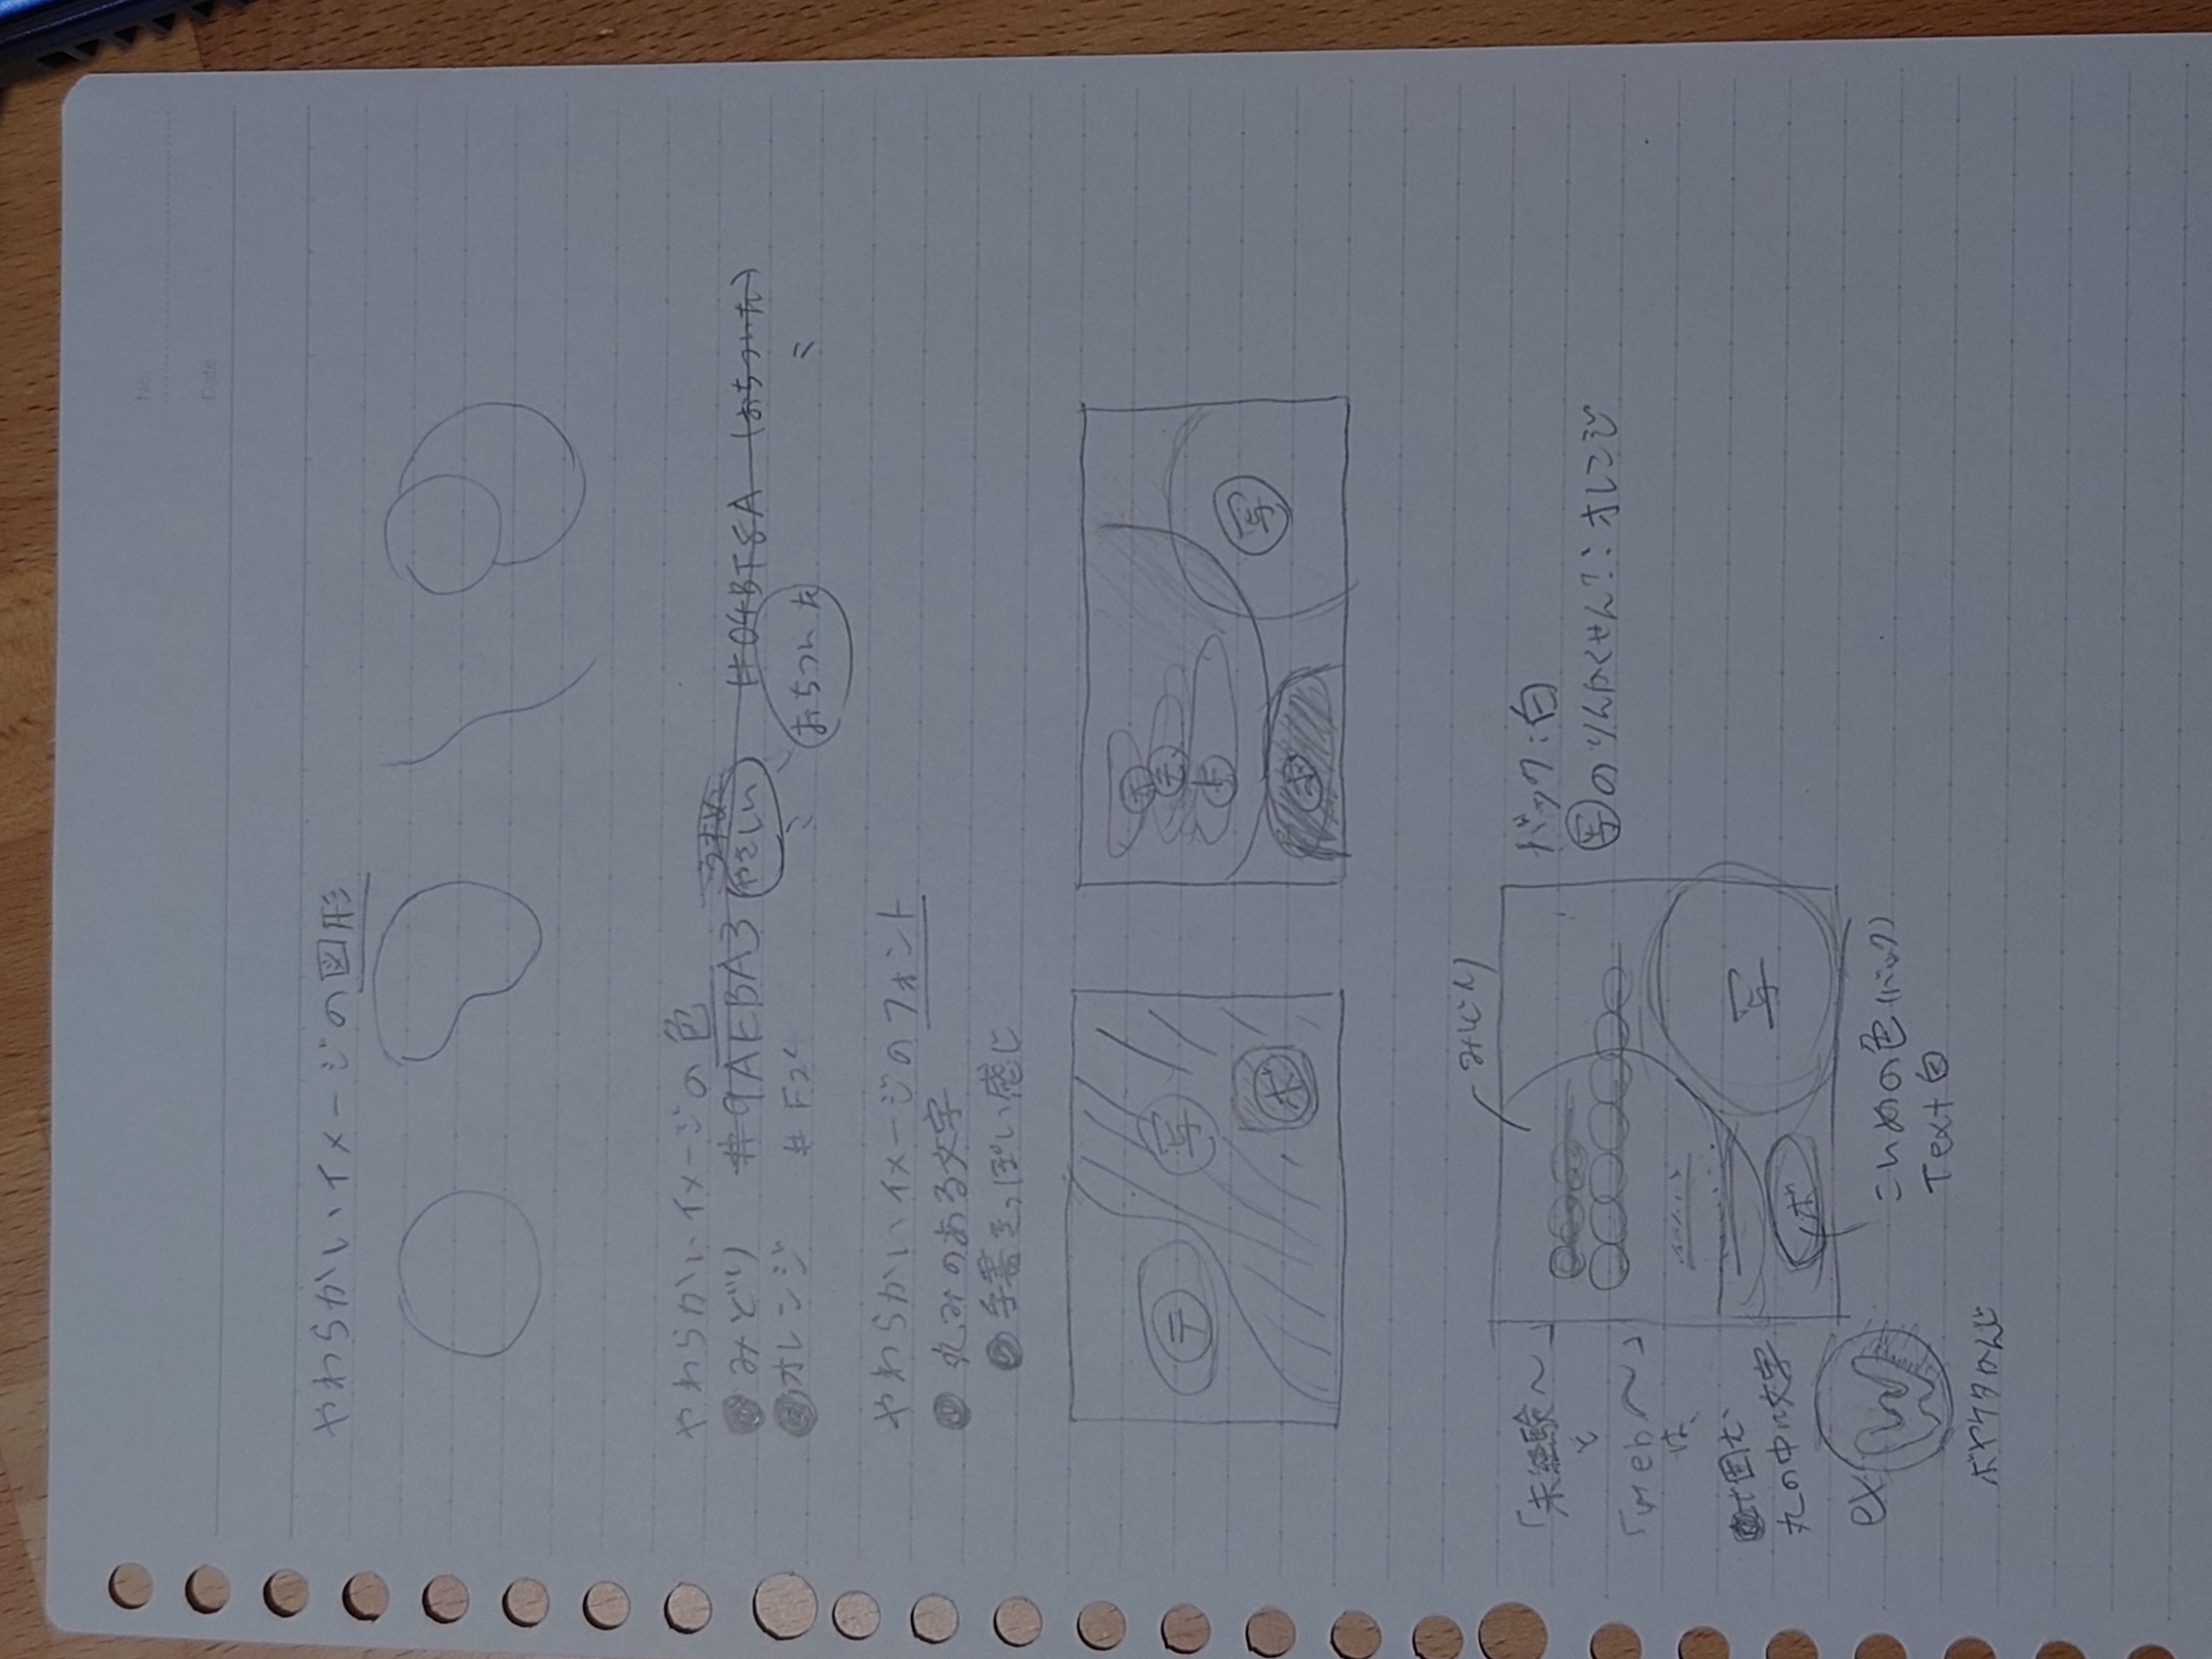 No.
Date
やわらかいイメージの図形
やわらかいイメージの色
うすめ
みどり #9AEBA3 やさしい #04BF8A (おちついた)
オレンジ #F2 おちついた
やわらかいイメージのフォント
丸みのある文字
手書きっぽい感じ
テ 写 ボ
テ
テ
ボ 写
みどり
「未経験〜」
と
「web〜」
は、
で囲む
丸の中に文字
ex W
ボヤケタかんじ
写
ボ
こいめの色(バック)
Text白
バック:白
写のりんかくせん?:オレンジ